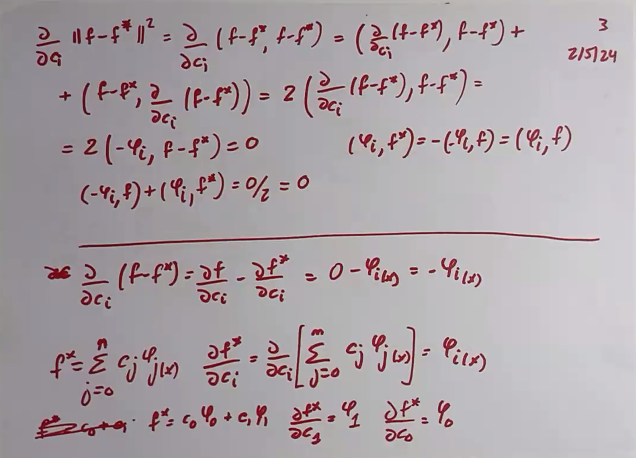 ∂/∂ci ||f-f*||² = ∂/∂ci (f-f*, f-f*) = (∂/∂ci (f-f*), f-f*) +
3
2/5/24
+ (f-f*, ∂/∂ci (f-f*)) = 2 (∂/∂ci (f-f*), f-f*) =
= 2(-φi, f-f*) = 0    (φi, f*) = -(-φi, f) = (φi, f)
(-φi, f) + (φi, f*) = 0/2 = 0
∂/∂ci (f-f*) = ∂f/∂ci - ∂f*/∂ci = 0 - φi(x) = -φi(x)
f* = Σ_{j=0}^{n} cj φj(x)    ∂f*/∂ci = ∂/∂ci [Σ_{j=0}^{n} cj φj(x)] = φi(x)
f* = c0 φ0 + c1 φ1    ∂f*/∂c1 = φ1    ∂f*/∂c0 = φ0